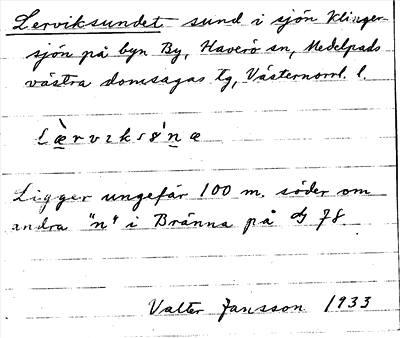 Lerviksundet sund i sjön Klinger-
sjön på byn By, Haverö sn, Medelpads
västra domsagas tg, Västernorrl. l.
Ligger ungefär 100 m. söder om
andra "n" i Bränna på 78.
Valter Jansson 1933